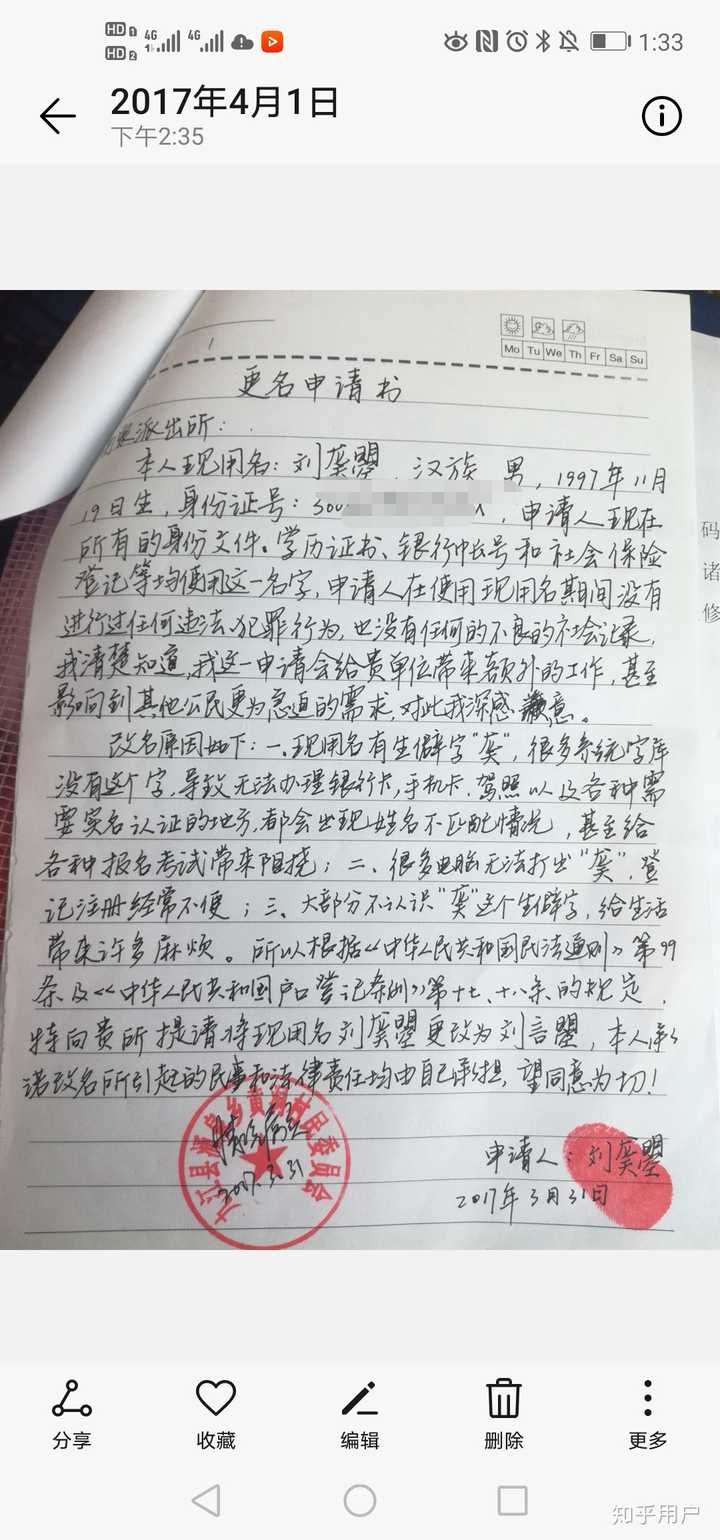 HD 1 4G 4G 1:33
HD 2
2017年4月1日
下午2:35
Mo Tu We Th Fr Sa Su
更名申请书
派出所：
本人现用名：刘龑曌，汉族，男，1997年11月
19日生，身份证号：360，申请人现在
所有的身份文件。学历证书、银行帐号和社会保险
登记等均使用这一名字，申请人在使用现用名期间没有
进行过任何违法、犯罪行为，也没有任何的不良的社会记录，
我清楚知道，我这一申请会给贵单位带来额外的工作，甚至
影响到其他公民更为急迫的需求，对此我深感歉意。
改名原因如下：一、现用名有生僻字“龑”，很多系统字库
没有这个字，导致无法办理银行卡，手机卡，驾照以及各种需
要实名认证的地方，都会出现姓名不匹配情况，甚至给
各种报名考试带来阻挠；二、很多电脑无法打出“龑”，登
记注册经常不便；三、大部分不认识“龑”这个生僻字，给生活
带来许多麻烦。所以根据《中华人民共和国民法通则》第99
条及《中华人民共和国户口登记条例》第十七、十八条的规定，
特向贵所提请将现用名刘龑曌更改为刘言曌，本人承
诺改名所引起的民事和法律责任均由自己承担，望同意为切！
九江县 乡黄 村民委员会
情况属实
2017.3.31
申请人：刘龑曌
2017年3月31日
码
诸
修
分享 收藏 编辑 删除 更多
知乎用户